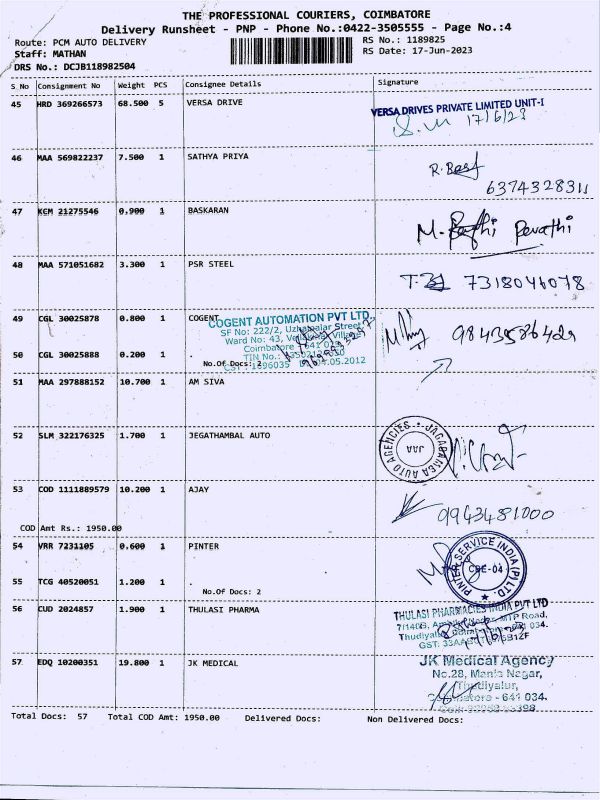 THE PROFESSIONAL COURIERS, COIMBATORE
Delivery Runsheet - PNP - Phone No.:0422-3505555 - Page No.:4
Route: PCM AUTO DELIVERY RS No.: 1189825
Staff: MATHAN RS Date: 17-Jun-2023
DRS No.: DCJB118982504
S.No Consignment No Weight PCS Consignee Details Signature
45 HRD 369266573 68.500 5 VERSA DRIVE
VERSA DRIVES PRIVATE LIMITED UNIT-I
17/6/23
46 MAA 569822237 7.500 1 SATHYA PRIYA
6374328311
47 KCM 21275546 0.900 1 BASKARAN
M. Revathi
48 MAA 571051682 3.300 1 PSR STEEL
7318046078
49 CGL 30025878 0.800 1 COGENT
COGENT AUTOMATION PVT LTD.
SF No: 222/2, Street
Ward No: 43,
Coimbatore
TIN No.:
9843586429
50 CGL 30025888 0.200 1 .
No.Of Docs: 2
51 MAA 297888152 10.700 1 AM SIVA
52 SLM 322176325 1.700 1 JEGATHAMBAL AUTO
JAGADAMBA AUTO AGENCIES
JAA
53 COD 1111889579 10.200 1 AJAY
9943481000
COD Amt Rs.: 1950.00
54 VRR 7231105 0.600 1 PINTER
PINTER SERVICE INDIA (P) LTD.
CBE-04
55 TCG 40520051 1.200 1 .
No.Of Docs: 2
56 CUD 2024857 1.900 1 THULASI PHARMA
THULASI PHARMACIES INDIA PVT LTD
MTP Road,
034.
57 EDQ 10200351 19.800 1 JK MEDICAL
JK Medical Agency
No.28, Mania Nagar,
Thudiyalur,
Coimbatore - 641 034.
Total Docs: 57 Total COD Amt: 1950.00 Delivered Docs: Non Delivered Docs: